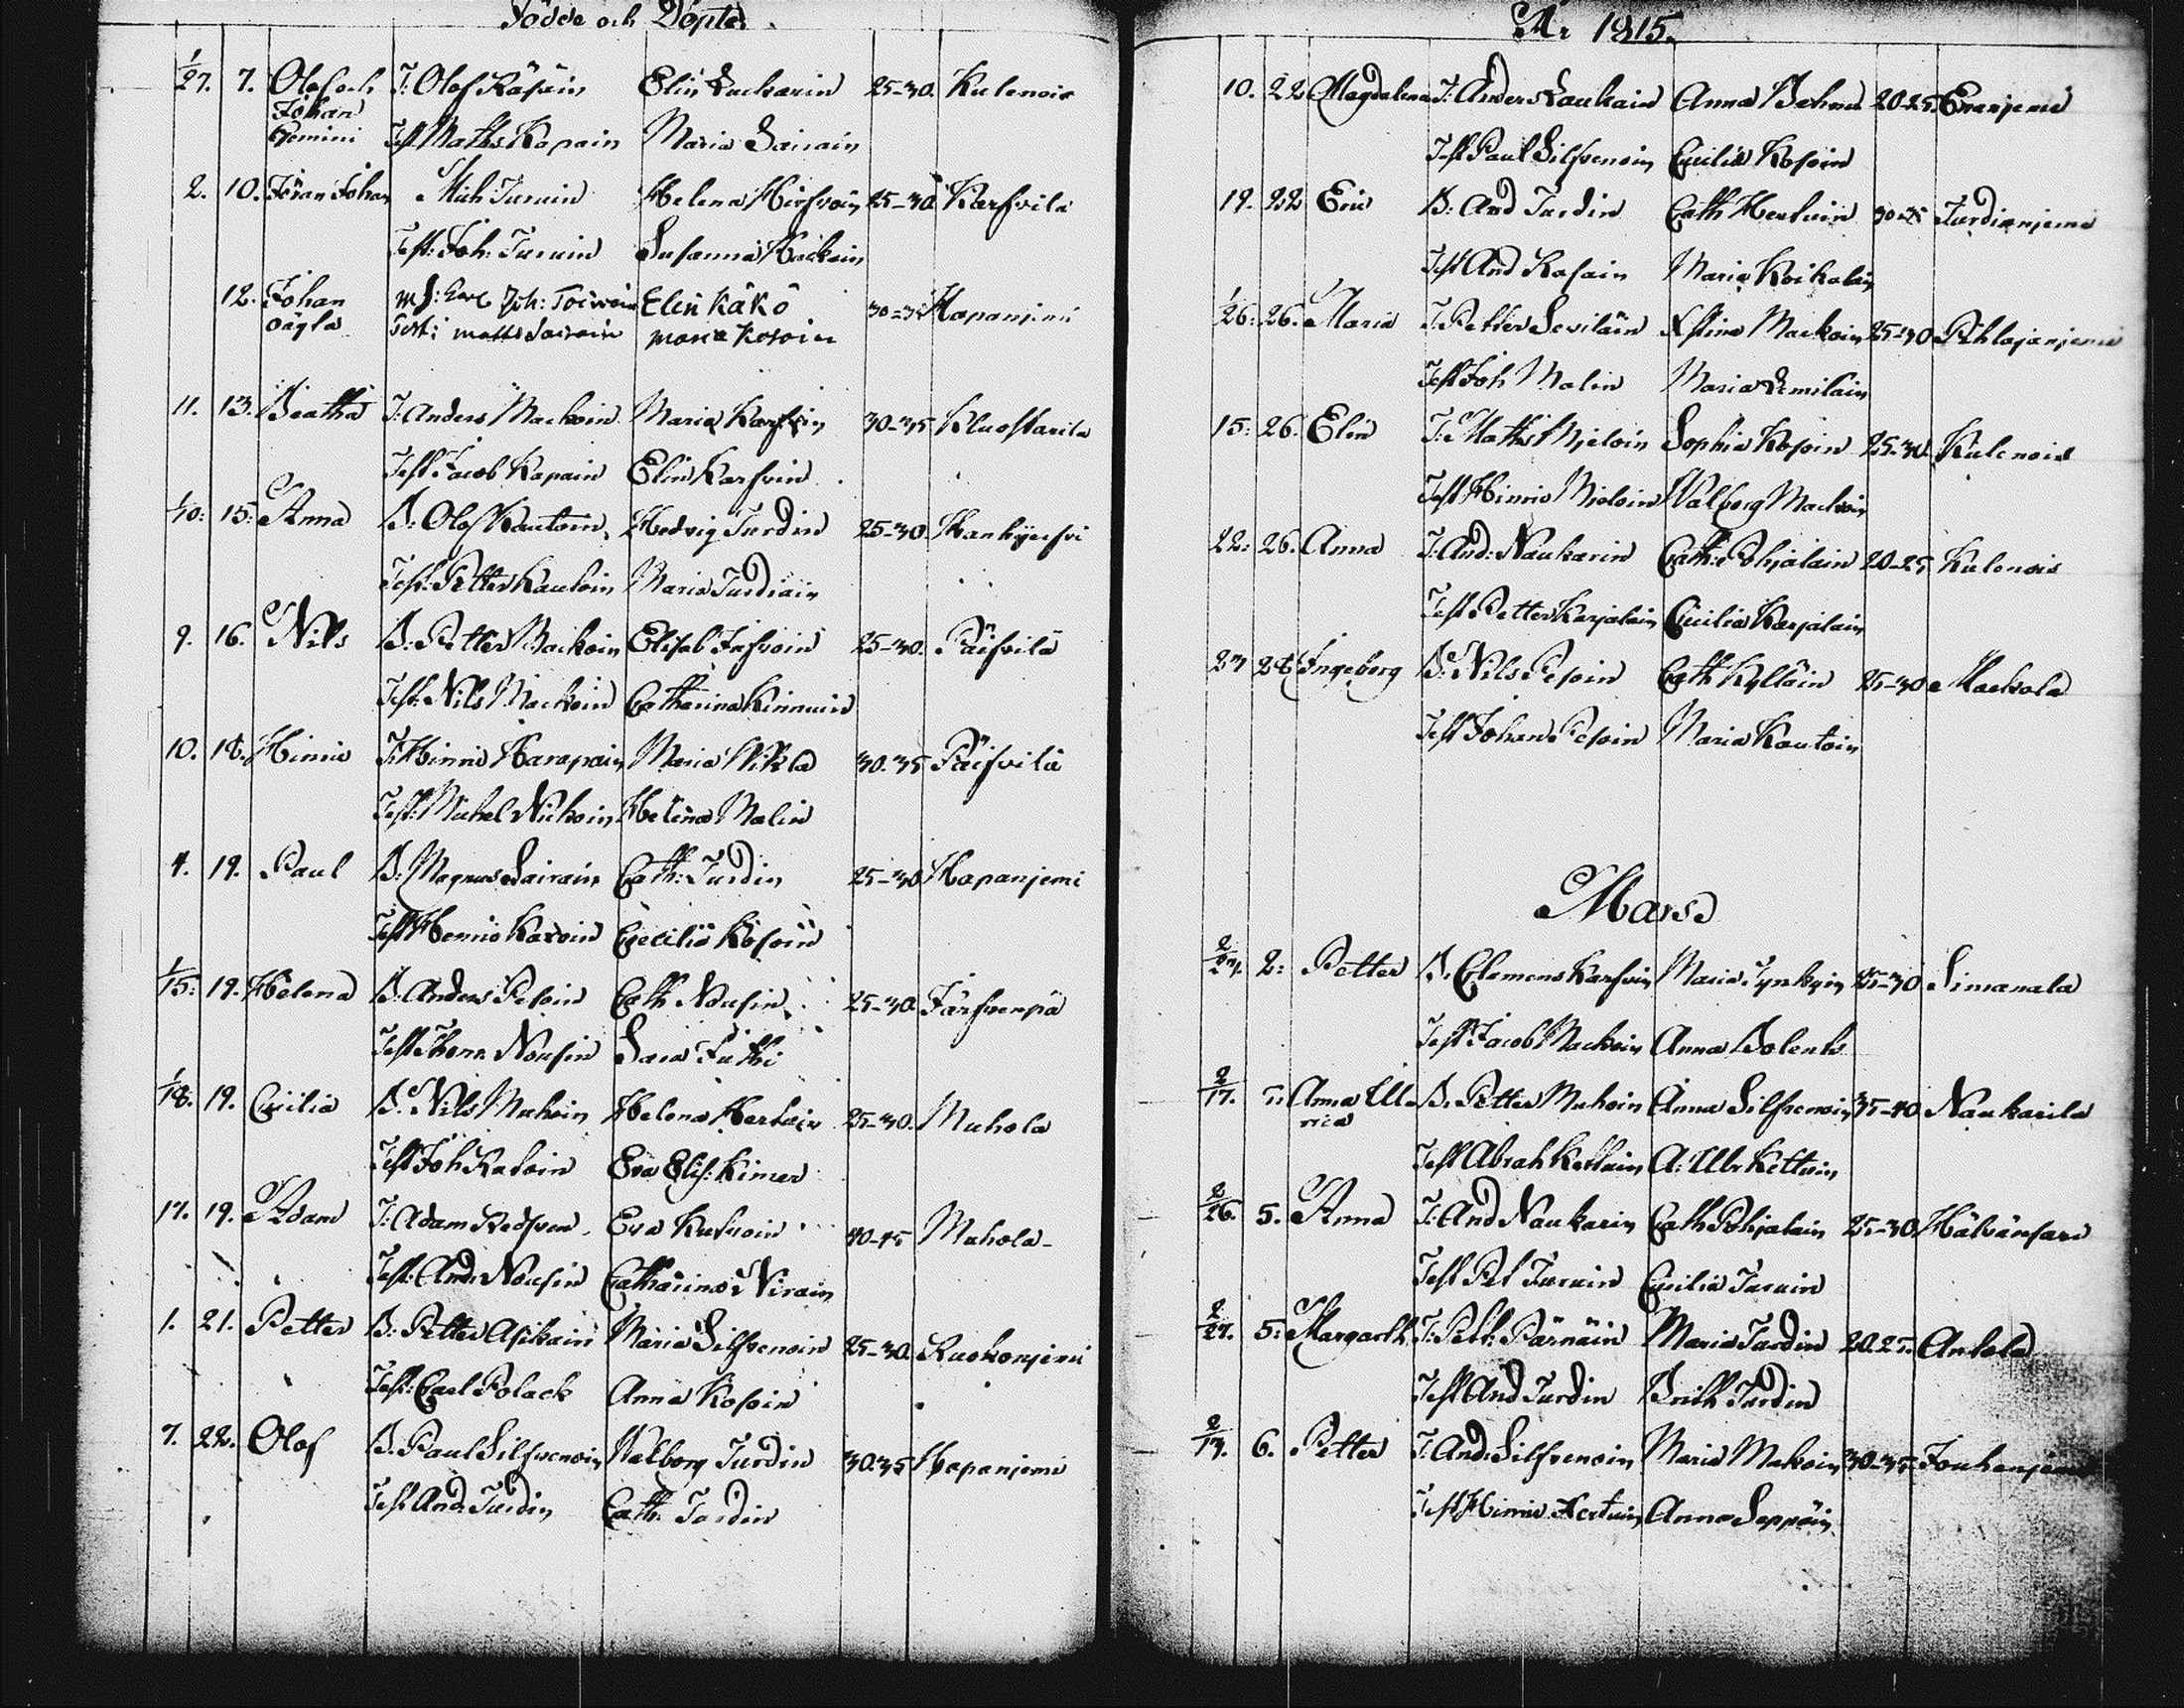 Födde och Döpte
1/27. 7. Olof och T: Olof Käpäin Elin Luckarin 25-30. Kulenois
Johan
Gemini Test Maths Kapain Maria Sairain
2. 10. Jöran Johan Mich: Turuin Helena Hirfvoin 25-30 Karfvila
Test: Joh: Turuin Susanna Hackain
12. Johan Joh: Toivoin Elin Käkö 30-35 Hapanjemi
oägta Test: Matts Sairain Maria Kosoin
11. 13. Beatha T: Anders Mackoin Maria Karfvin 30-35 Kluostarila
Test Jacob Kapain Elin Karfvin
1/10: 15: Anna B: Olof Kautoin Hedvig Turdin 25-30. Kankijerfvi
Test: Petter Kautoin Maria Turdiain
9. 16. Nils B: Petter Mackoin Elisab 25-30. Päifvilä
Test: Nils Mackoin Catharina Kinnuin
10. 18. Hinric T: Hinric Harapain Maria Nikla 30-35 Päifvilä
Test: Michel Nickoin Helena Malin
4. 19. Paul B: Magnus Sairain Cath: Turdin 25-30 Hapanjemi
Test Henric Karoin Cecilia Kosoin
1/15: 19. Helena B: Anders Pesoin Cath Nousin 25-30. Järfvenpä
Test Thom. Nousin Sara Juthi
1/18. 19. Cecilia B: Nils Muhoin Helena Hertuin 25-30. Muhola
Test Joh Kasoin Eva Elis: Kimer
17. 19. Adam T: Adam Redsven Eva Kurvoin 40-45 Muhola
Test: And: Nousin Catharina Virain
1. 21. Petter B: Petter Asikain Maria Silfvenoin 25-30. Ruokonjemi
Test: Carl Polack Anna Kosoin
7. 22. Olof B: Paul Silfvenoin Walborg Turdin 30-35 Hapanjemi
Test And: Turdin Cath: Turdin
År 1815.
10. 22 Magdalena T: Anders Laukain Anna Behm 20-25. Eranjemi
Test Paul Silfvenoin Cecilia Kosoin
19. 22 Eric B: And Turdin Cath Hertuin 30-35 Turdianjemi
Test And Kasain Maria Koikalain
1/26. 26. Maria T: Petter Seviläin Stina Mackoin 25-30 Pihlajanjemi
Test Joh Malin Maria Lemiläin
15: 26. Elin T: Maths Mieloin Sophia Kosoin 25-30. Kulenois
Test Hinric Mieloin Walborg Mackoin
22: 26. Anna T: And: Naukarin Cath: Pohjalain 20-25. Kulenois
Test Petter Karjalain Cecilia Karjalain
27 28 Ingeborg B: Nils Pesoin Cath Kylläin 25-30 Mackola
Test Johan Pesoin Maria Kautoin
Mars
2/27. 2: Petter B: Clemens Karfvin Maria Tynkyin 25-30 Simanala
Test Jacob Mackoin Anna
2/17. Anna Ul- B: Petter Muhoin Anna Silfvenoin 35-40 Naukarila
rica
Test Abrah Kettuin A: Ulr Kettuin
2/26. 5. Anna T: And Naukarin Cath Pohjalain 25-30. Hälvänsari
Test Pet Turuin Cecilia Turuin
2/27. 5: Margareth T: Pett: Pärnäin Maria Turdin 20-25. Antola
Test And Turdin Brith Turdin
2/17. 6. Petter T: And: Silfvenoin Maria Makoin 30-35. Jouhenjemi
Test Hinric Hertuin Anna Seppäin